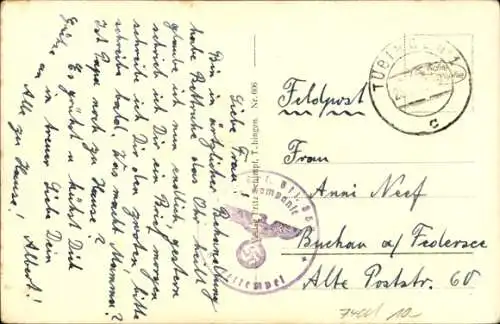 Liebe Frau!
Bin in ärztlicher Behandlung
habe Bettruhe das Ohr heilt
glaube ich nun endlich, gestern
schrieb ich Dir ein Brief morgen
schreibe ich Dir den zweiten, bitte
schreibe bald, Was macht Mamma?
Ist Papa noch zu Hause?
Es grüßt u küßt Dich
in treuer Liebe Dein
Albert!
Grüße an
Alle zu Hause!
Verlag Fritz Schimpf, Tübingen. Nr. 606
TÜBINGEN 1
c
Kompanie
Briefstempel
Feldpost
Frau
Anni Neef
Buchau a/ Federsee
Alte Poststr. 60